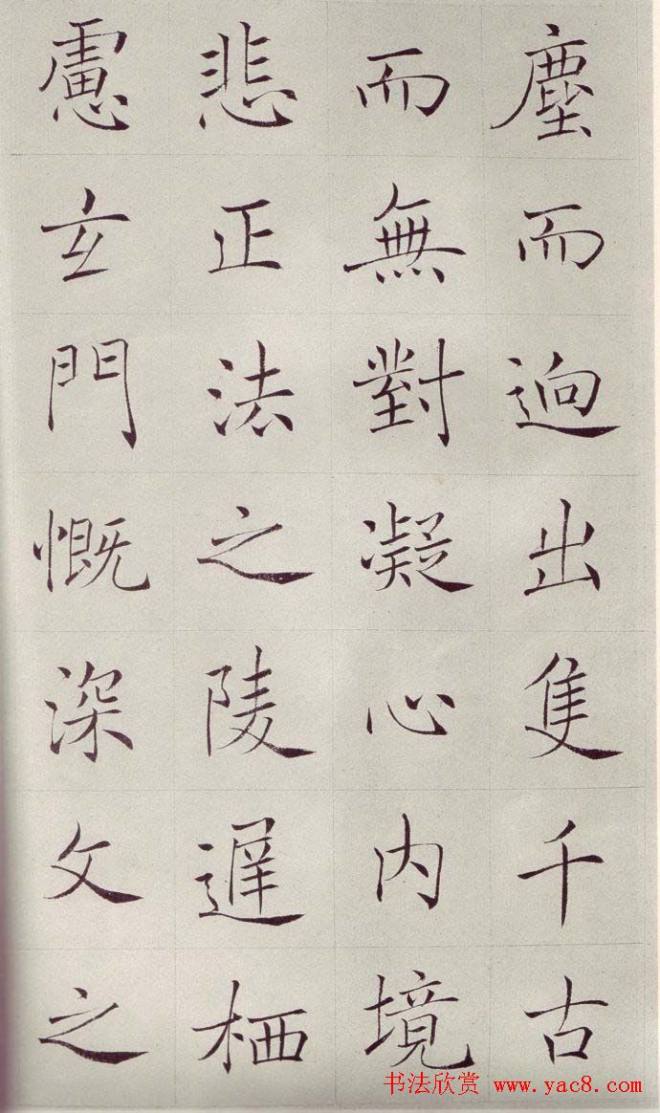 塵而逈出隻千古
而無對凝心内境
悲正法之陵遲栖
慮玄門慨深文之
书法欣赏 www.yac8.com